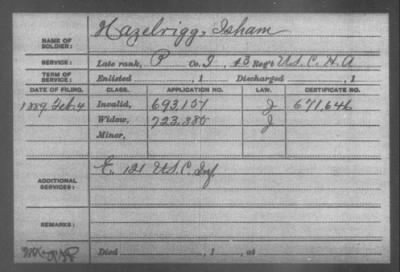 NAME OF SOLDIER: Hazelrigg, Isham
SERVICE: Late rank, P Co. I, 13 Reg't U.S.C.H.A
TERM OF SERVICE: Enlisted , 1 Discharged , 1
DATE OF FILING. CLASS. APPLICATION NO. LAW. CERTIFICATE NO.
1889 Feb. 4 Invalid, 693.157 J 671.646
Widow, 723.880 J
Minor,
ADDITIONAL SERVICES: E. 121 U.S.C. Inf
REMARKS:
Died , 1 , at